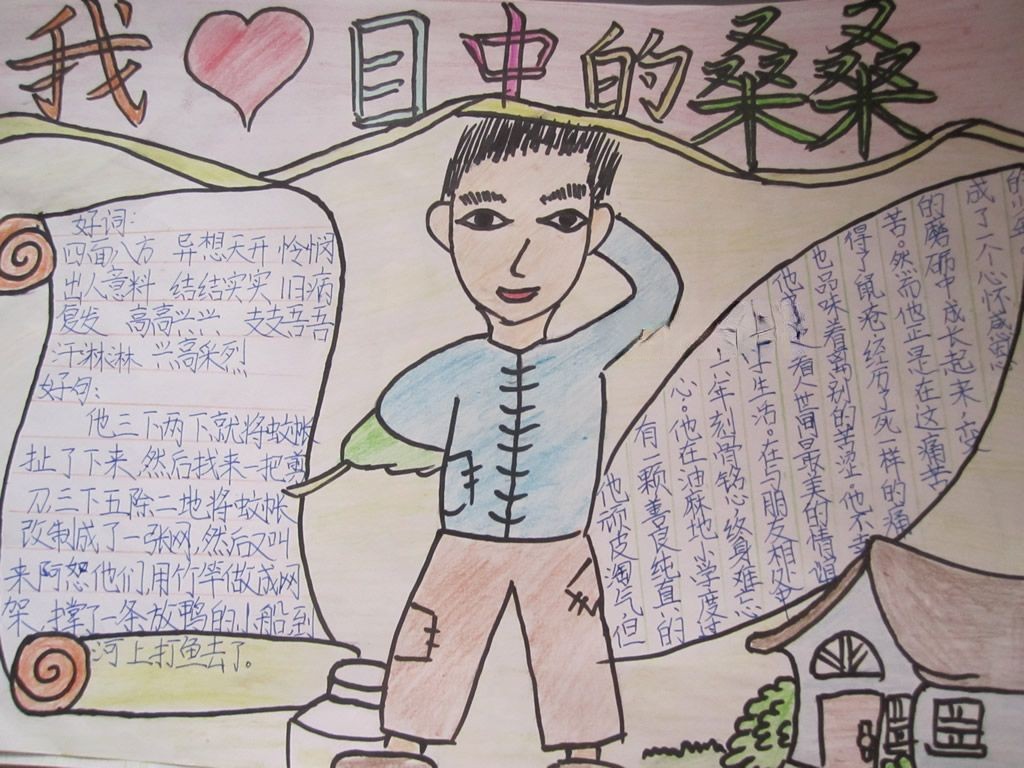 我目中的桑桑
好词:
四面八方 异想天开 怜悯
出人意料 结结实实 旧病
复发 高高兴兴 支支吾吾
汗淋淋 兴高采烈
好句:
他三下两下就将蚊帐
扯了下来,然后找来一把剪
刀三下五除二地将蚊帐
改制成了一张网,然后又叫
来阿恕他们,用竹竿做成网
架,撑了一条放鸭的小船到
河上打鱼去了。
他顽皮淘气,但
有一颗善良纯真的
心。他在油麻地小学度过
六年刻骨铭心终身难忘
小学生活。在与朋友相处
看人世间最美的情谊
也品味着离别的苦涩。他不
得了鼠疮,经历了死一样的痛
苦。然而他正是在这痛苦
的磨砺中成长起来,
成了一个心怀感恩
的少年